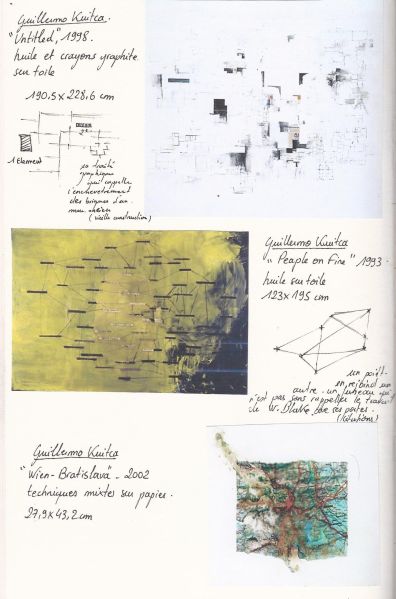 Guillermo Kuitca.
"Untitled", 1998.
huile et crayons graphite
sur toile
190.5 x 228,6 cm
1 élément
traité
graphique
qui rappelle
l'enchevêtrement
des briques d'un
mur
(vieille construction)
Guillermo Kuitca
"People on Fire" 1993.
huile sur toile
123 x 195 cm
un point -
autre - un
n'est pas sans rappeler le travail
de W.
Guillermo Kuitca
"Wien-Bratislava" - 2002
techniques mixtes sur papier.
27,9 x 43,2 cm